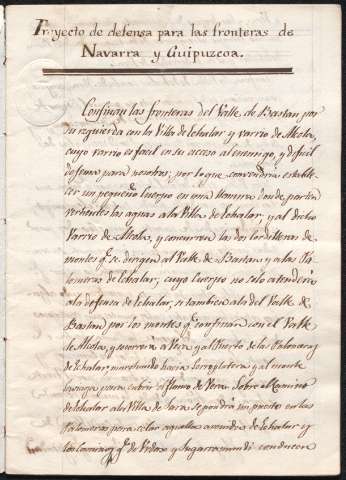 Proyecto de defensa para las fronteras de
Navarra y Guipuzcoa.
Confinan las fronteras del Valle de Bastan por
su izquierda con la Villa de Echalar y varrio de Alcola,
cuyo varrio es facil en su acceso al enemigo, y dificil
defensa para nosotros, por lo que convendria estable-
cer un pequeño cuerpo en una llanura donde parten
vertientes las aguas a la Villa de Echalar, y al dicho
Varrio de Alcola, y concurren las dos cordilleras de
montes q.e se dirigen al Valle de Bastan y a las Pa-
lomeras de Echalar; cuyo cuerpo no solo atenderá
a la defensa de Echalar, si tambien a la del Valle de
Bastan por los montes q.e confinan con el Valle
de Alcola, y socorrerá a Vera y al Puerto de las Palomeras
de Echalar, marchando hacia y al monte
para cubrir el flanco de Vera. Sobre el Camino
de Echalar a la Villa de Sara se pondrá un puesto en las
Palomeras para celar aquella avenida de Echalar y
los Caminos q.e de Urdax y Zugarramurdi conducen